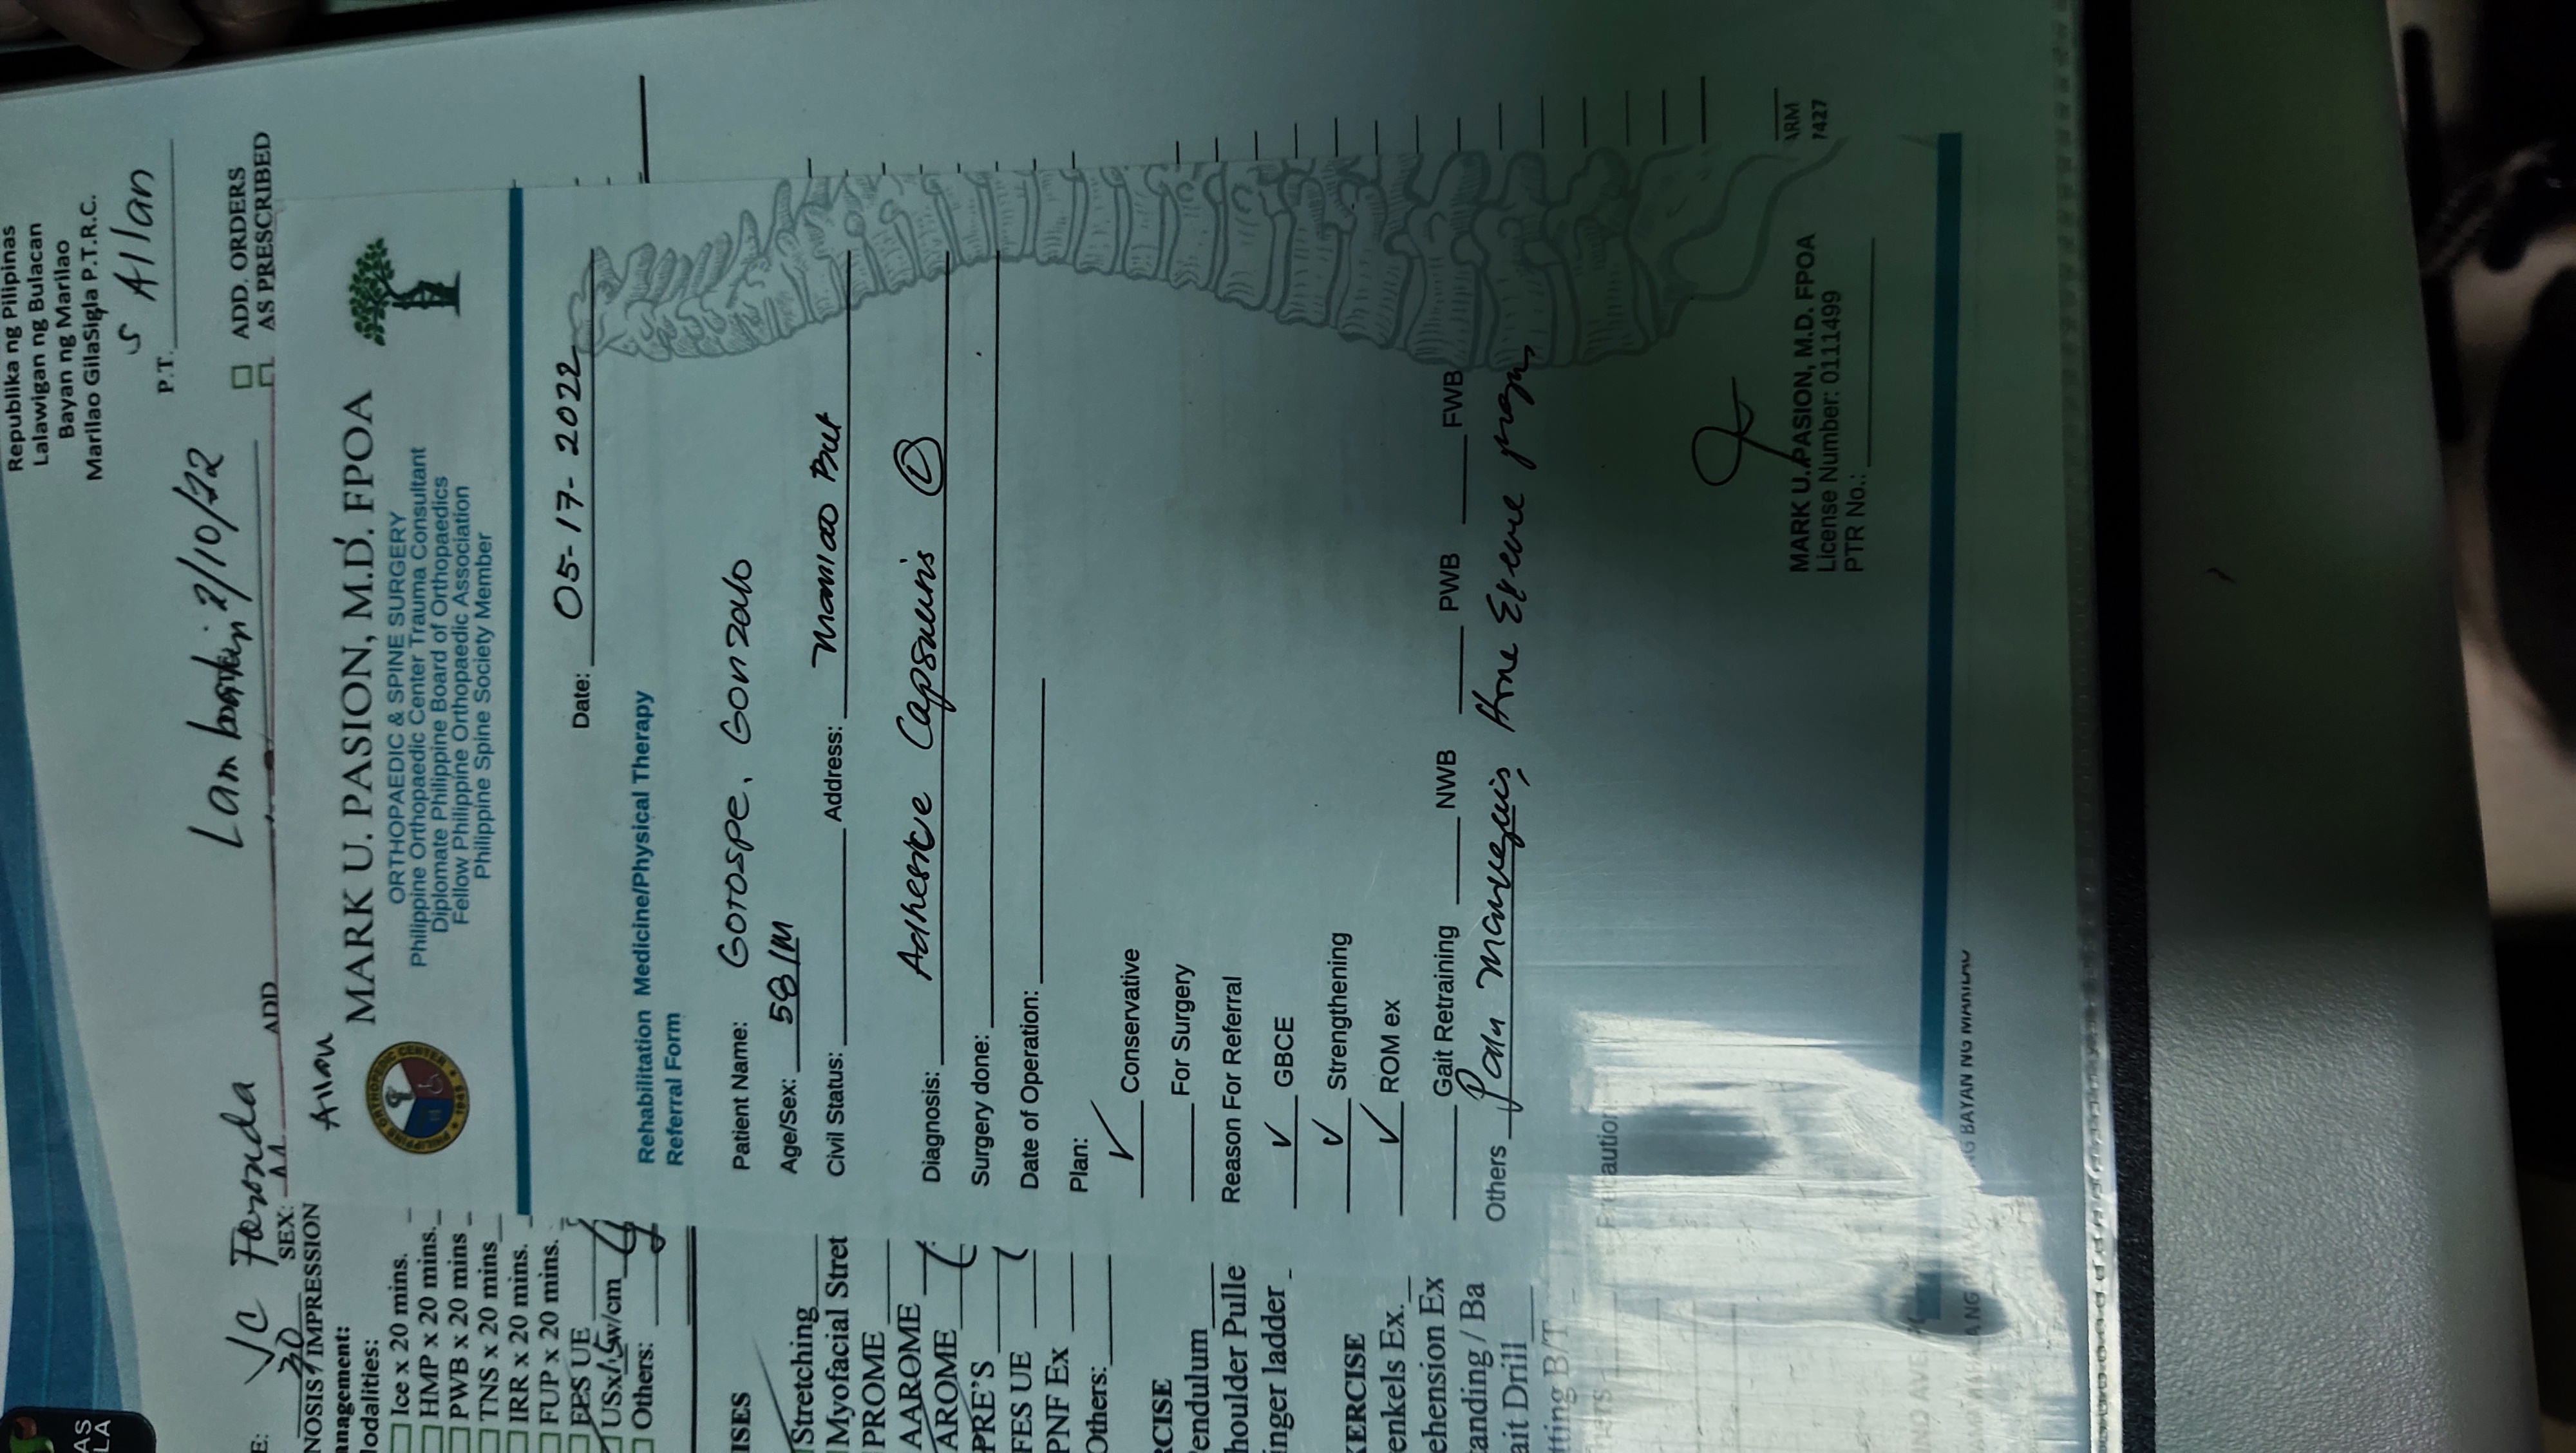 AS
LA
Republika ng Pilipinas
Lalawigan ng Bulacan
Bayan ng Marilao
Marilao GilaSigla P.T.R.C.
P.T. S Allan
E: JC Foronda
ADD 2/10/22
ADD. ORDERS
AS PRESCRIBED
30 SEX: M
NOSIS / IMPRESSION
anagement:
odalities:
Ice x 20 mins.
HMP x 20 mins.
PWB x 20 mins
TNS x 20 mins
IRR x 20 mins.
FUP x 20 mins.
FES UE
USx1.5w/cm
Others:
ISES
Stretching
Myofacial Stret
PROME
AAROME
AROME
PRE'S
FES UE
PNF Ex
Others:
RCISE
endulum
houlder Pulle
inger ladder
XERCISE
enkels Ex.
ehension Ex
tanding / Ba
ait Drill
tting B/T
hers
Allan
MARK U. PASION, M.D. FPOA
ORTHOPAEDIC & SPINE SURGERY
Philippine Orthopaedic Center Trauma Consultant
Diplomate Philippine Board of Orthopaedics
Fellow Philippine Orthopaedic Association
Philippine Spine Society Member
1945
Date: 05-17-2022
Rehabilitation Medicine/Physical Therapy
Referral Form
Patient Name: Gorospe, Gonzalo
Age/Sex: 58/M
Civil Status: Address: Marilao Bul
Diagnosis: Adhesive Capsulitis
Surgery done:
Date of Operation:
Plan:
✓ Conservative
For Surgery
Reason For Referral
✓ GBCE
✓ Strengthening
✓ ROM ex
Gait Retraining NWB PWB FWB
Others Pain Home Exercise program
Precaution
MARK U. PASION, M.D. FPOA
License Number: 0111499
PTR No.:
ARM
7427
IND AVE,
NG BAYAN NG MARILAO